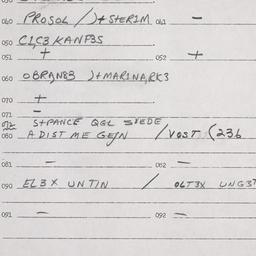 040 PROSOL /)+STER1M 041 —
050 C1,C3/KANF3S
051 + 052 +
060 OBRAN83 )+MAR1NA,RK3
070 +
071 —
072 S+PANCE QGL SFEDE
080 A DIST ME GEJN /VOST (236
081 — 082 —
090 EL3X UNTIN / OLT3X UNG3T
091 — 092 —